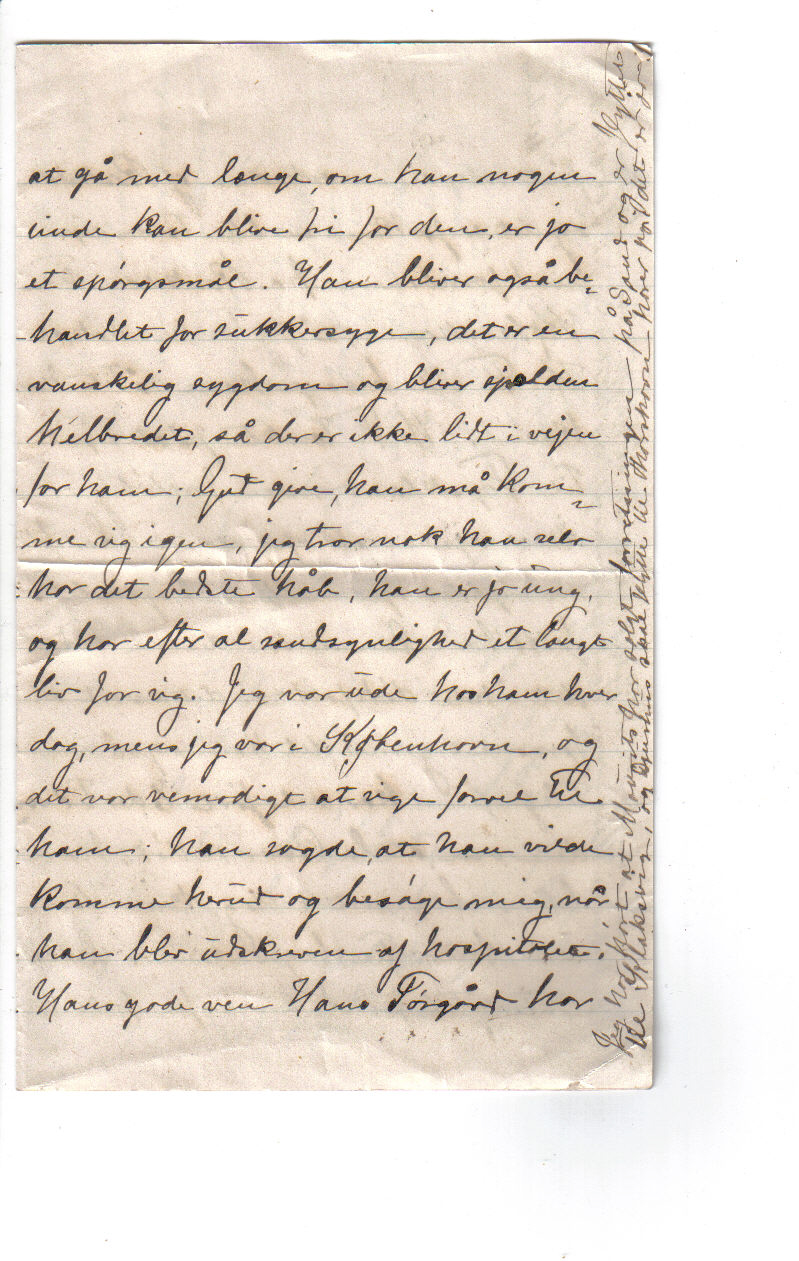 at gå med længe, om han nogen
sinde kan blive fri for den, er jo
et spórgsmål. Han bliver også be=
handlet for sukkersyge, det er en
vanskelig sygdom og bliver sjælden
helbredet, så der er ikke lidt i vejen
for ham; Gud give, han må kom=
me sig igen, jeg tror nok han selv
har det bedste håb, han er jo ung,
og har efter al sandsynlighed et langt
liv for sig. Jeg var ude hos ham hver
dag, mens jeg var i København, og
det var vemodigt at sige farvel til
ham; han sagde, at han vilde
komme herud og besóge mig, når
han blev udskreven af hospitalet.
Hans gode ven Hans Tórgård har
Jeg har hórt at Mourits har solgt forretningen på Sand og er flyttet
til Klaksvig, og skal flytte til Thorshavn